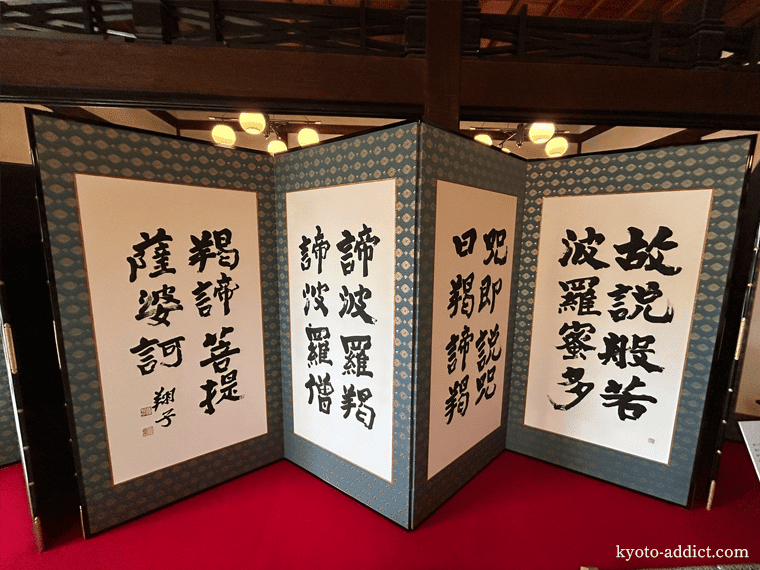 故説般若
波羅蜜多
咒即説咒
曰羯諦羯
諦波羅羯
諦波羅僧
羯諦菩提
薩婆訶
翔子
kyoto-addict.com